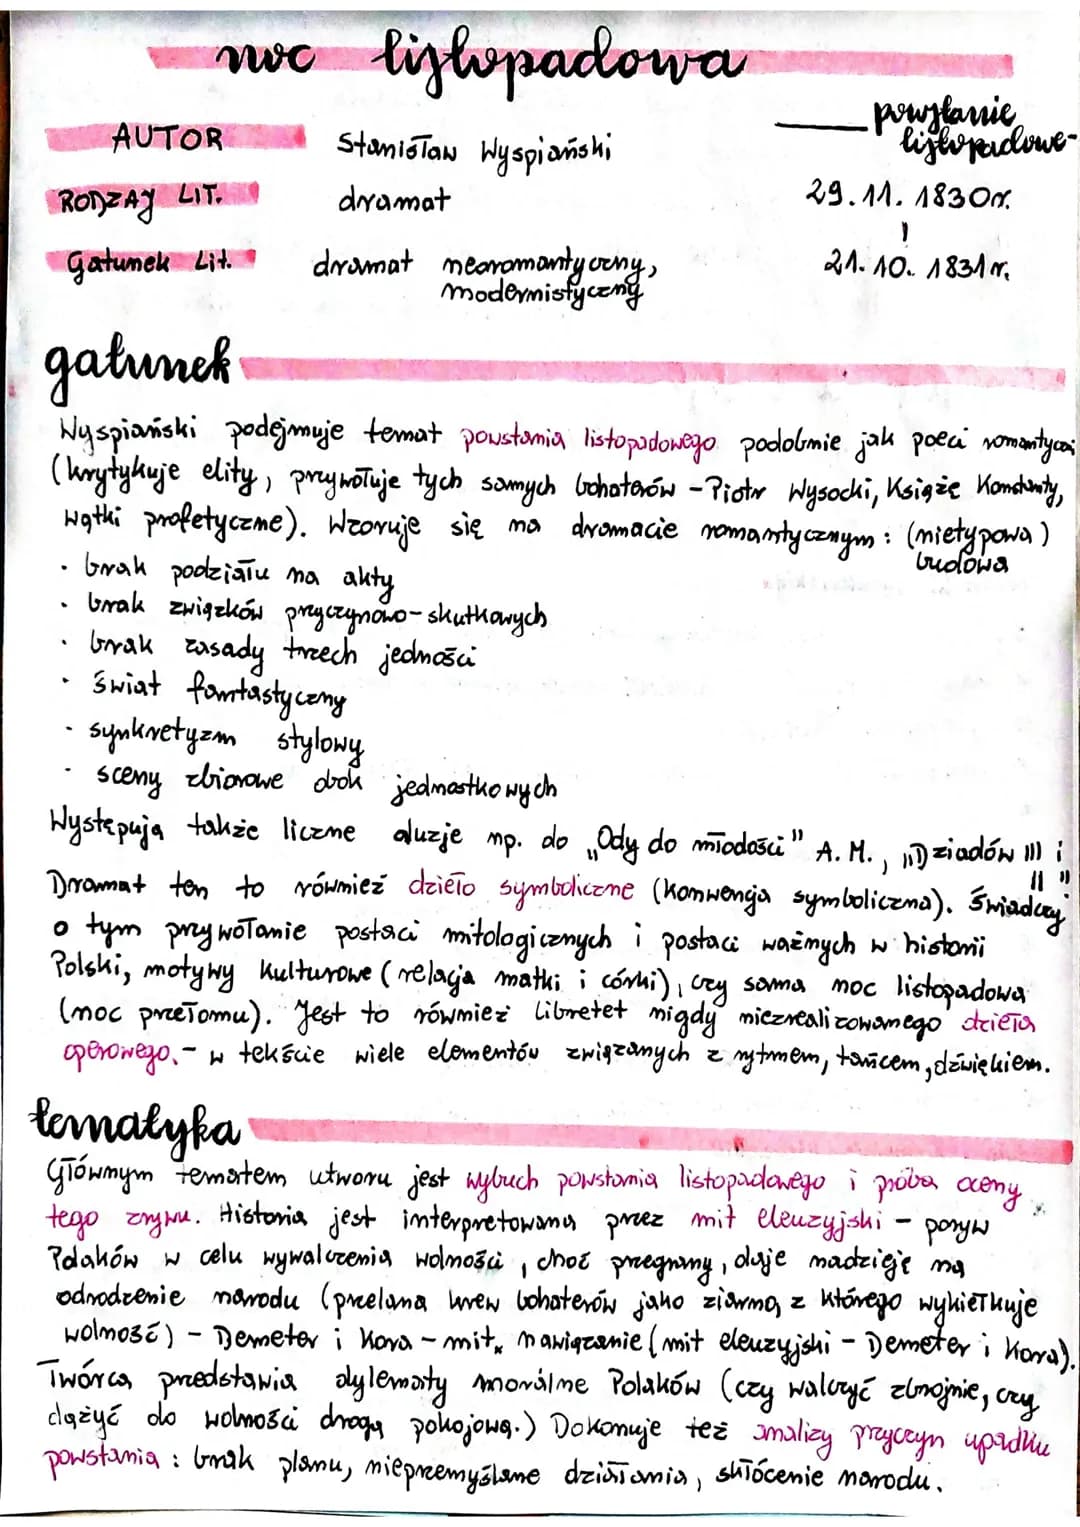 noc listopadowa
powstanie
listopadowe
AUTOR Stanisław Wyspiański
RODZAJ LIT. dramat 29.11.1830r.
Gatunek Lit. dramat neoromantyczny, 21.10.1831r.
modernistyczny
gatunek
Wyspiański podejmuje temat powstania listopadowego podobnie jak poeci romantyczni
(krytykuje elity, przywołuje tych samych bohaterów - Piotr Wysocki, Książę Konstanty,
wątki profetyczne). Wzoruje się na dramacie romantycznym: (nietypowa)
budowa
• brak podziału na akty
• brak związków przyczynowo-skutkowych
• brak zasady trzech jedności
• świat fantastyczny
• synkretyzm stylowy
• sceny zbiorowe obok jednostkowych
Występują także liczne aluzje np. do „Ody do młodości" A.M., „Dziadów III i
II"
Dramat ten to również dzieło symboliczne (konwencja symboliczna). Świadczy
o tym przywołanie postaci mitologicznych i postaci ważnych w historii
Polski, motywy kulturowe (relacja matki i córki), czy sama noc listopadowa
(noc przełomu). Jest to również libretet nigdy niezrealizowanego dzieła
operowego. - w tekście wiele elementów związanych z rytmem, tańcem, dźwiękiem.
tematyka
Głównym tematem utworu jest wybuch powstania listopadowego i próba oceny
tego zrywu. Historia jest interpretowana przez mit eleuzyjski - poryw
Polaków w celu wywalczenia wolności, choć przegrany, daje nadzieję na
odrodzenie narodu (przelana krew bohaterów jako ziarno, z którego wykiełkuje
wolność) - Demeter i Kora - mit, nawiązanie (mit eleuzyjski - Demeter i Kora).
Twórca przedstawia dylematy moralne Polaków (czy walczyć zbrojnie, czy
dążyć do wolności drogą pokojową.) Dokonuje też analizy przyczyn upadku
powstania: brak planu, nieprzemyślane działania, skłócenie narodu.